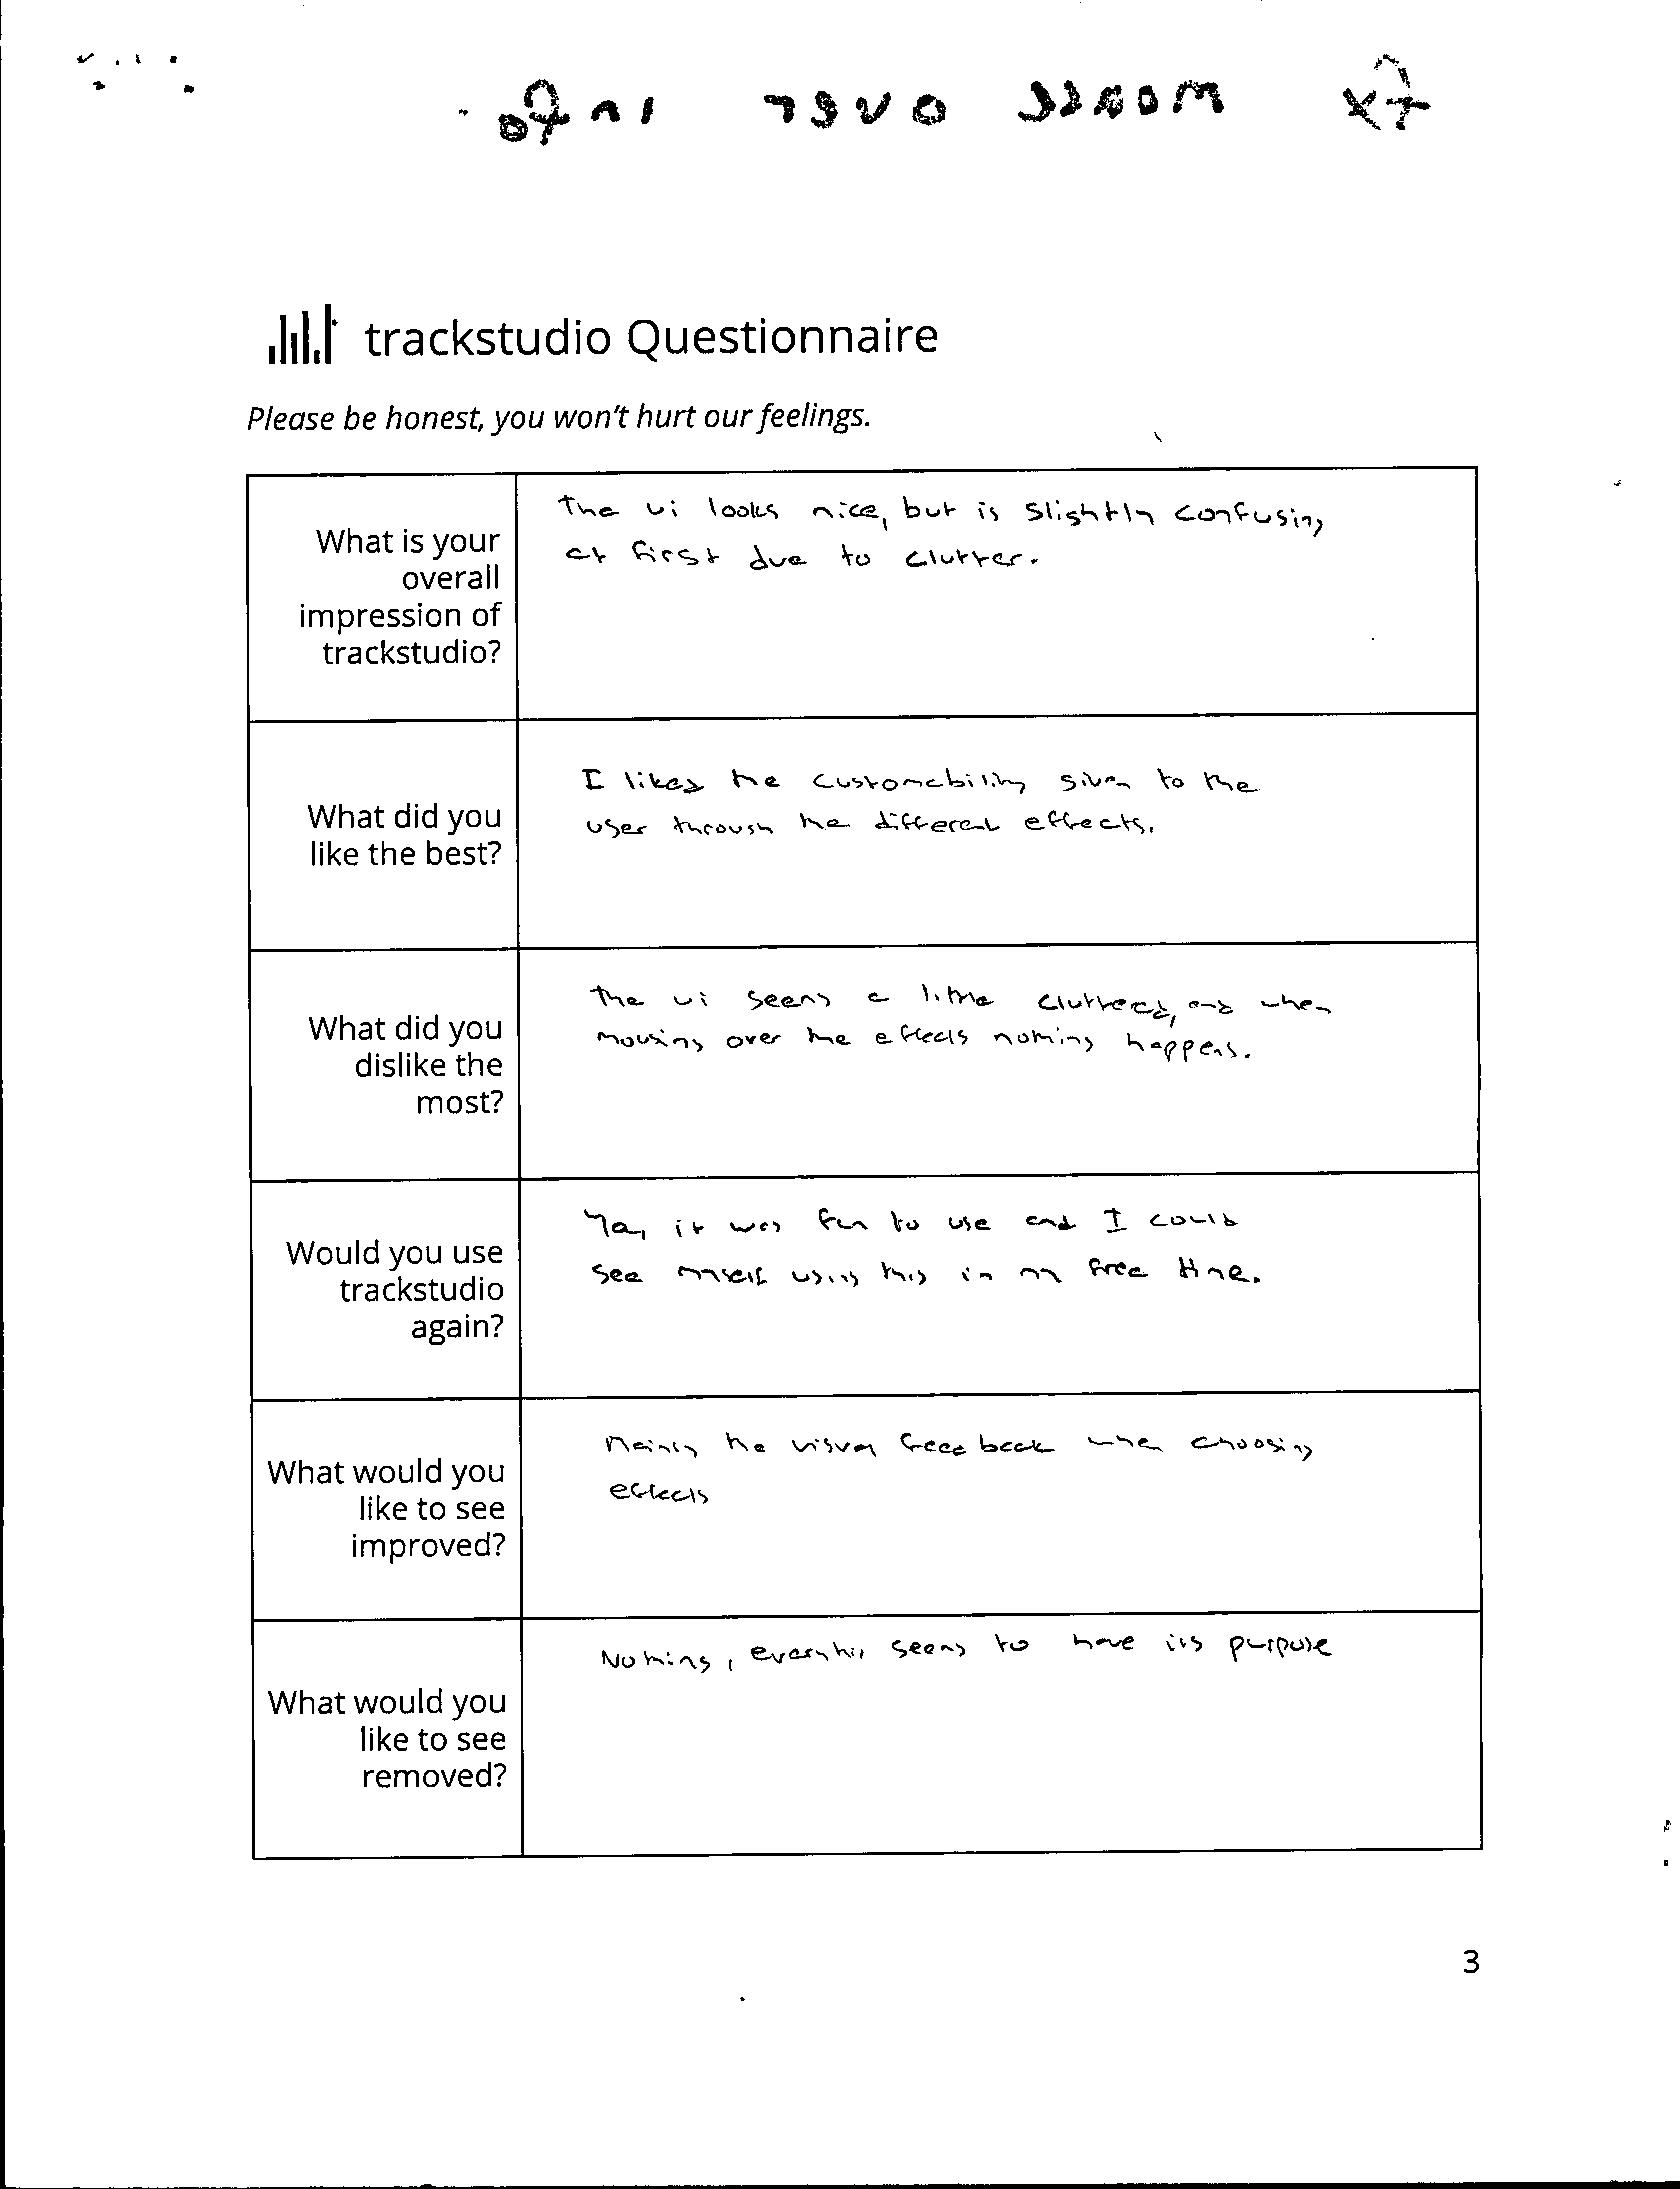 trackstudio Questionnaire
Please be honest, you won't hurt our feelings.
What is your
overall
impression of
trackstudio?
The ui looks nice, but is slightly confusing
at first due to clutter.
What did you
like the best?
I liked the customability given to the
user through the different effects.
What did you
dislike the
most?
The ui seems a little cluttered, and when
mousing over the effects nothing happens.
Would you use
trackstudio
again?
it was fun to use and I could
see myself using this in my free time.
What would you
like to see
improved?
Mainly the visual feedback when choosing
effects
What would you
like to see
removed?
Nothing, seems to have its purpose
3